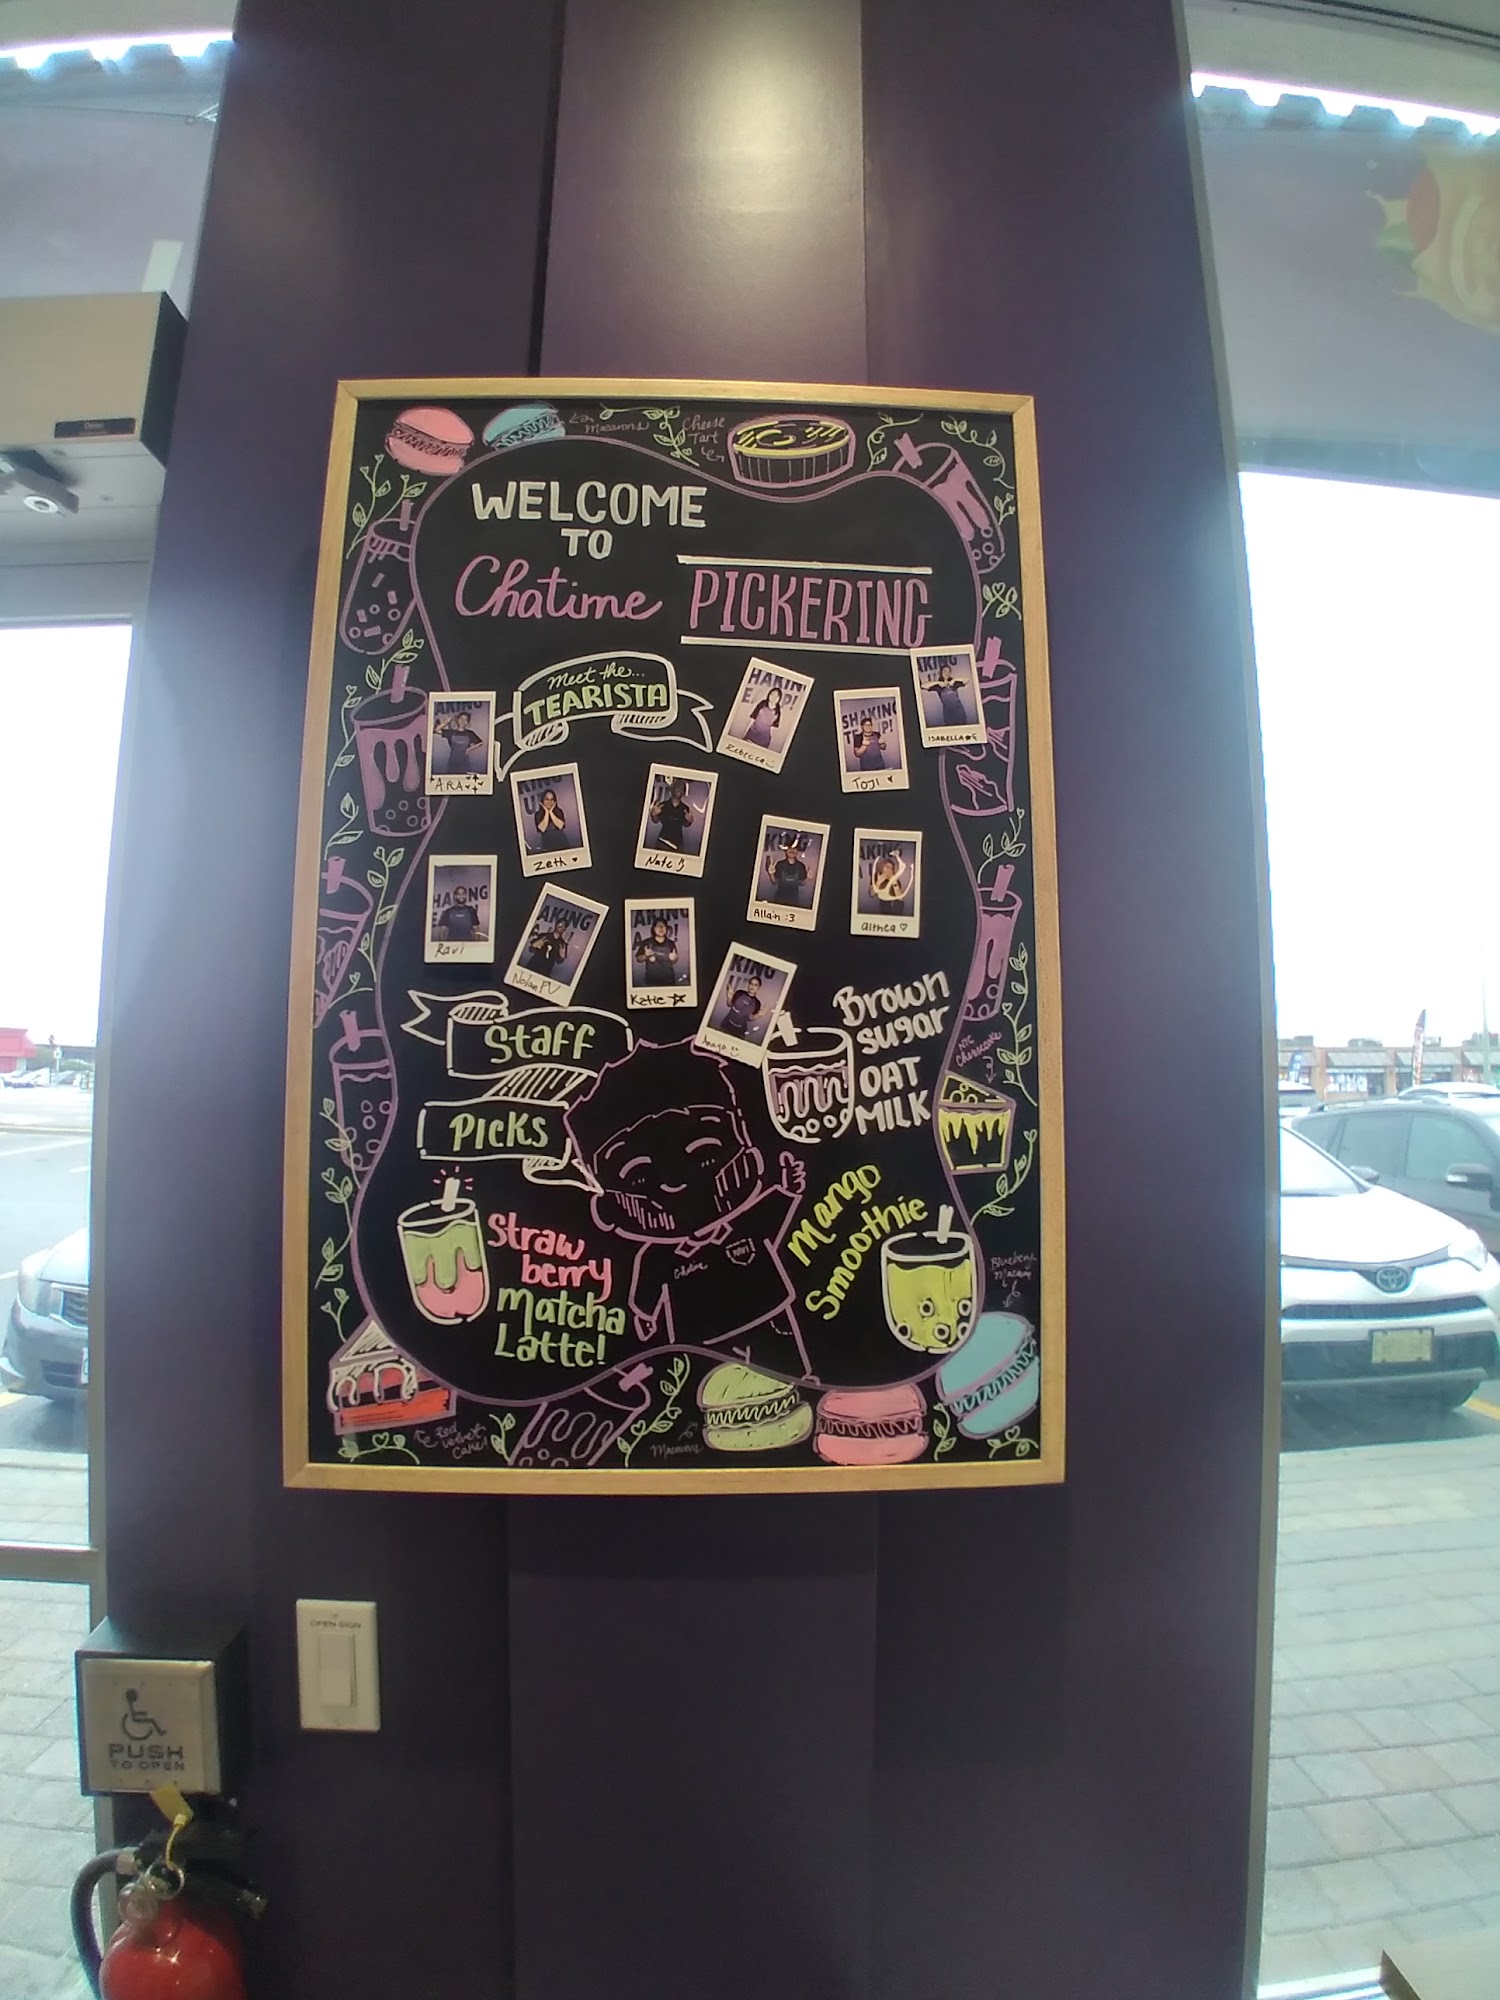 Macarons
Cheese
Tart
WELCOME
TO
Chatime PICKERING
meet the...
TEARISTA
ARA
Rebecca
SHAKING
TOJI
ISABELLA
Zeth
Nate
Allain :3
althea
Ravi
Nolan PV
Katie
Staff
PICKS
Brown
sugar
OAT
MILK
NYC
Cheesecake
Straw
berry
Matcha
Latte!
Mango
Smoothie
Chatime
Blueberry
Macaron
Red
Velvet
Cake!
Macarons
OPEN SIGN
PUSH
TO OPEN